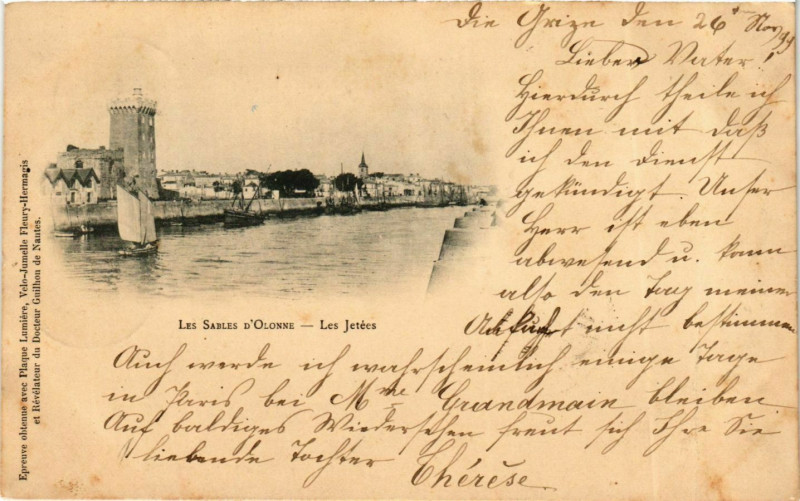 Die Grize den 26t Nov 99
Lieber Vater!
Hierdurch theile ich
Ihnen mit daß
ich den Dienst
gekündigt. Unser
Herr ist eben
abwesend u. kann
also den Tag meiner
Ankunft nicht bestimmen
Auch werde ich wahrscheinlich einige Tage
in Paris bei Mme Grandmain bleiben
Auf baldiges Wiedersehen freut sich Ihre Sie
liebende Tochter Thérèse
LES SABLES D'OLONNE — LES JETÉES
Epreuve obtenue avec Plaque Lumière, Velo-Jumelle Fleury-Hermagis
et Révélateur du Docteur Guilhon de Nantes.